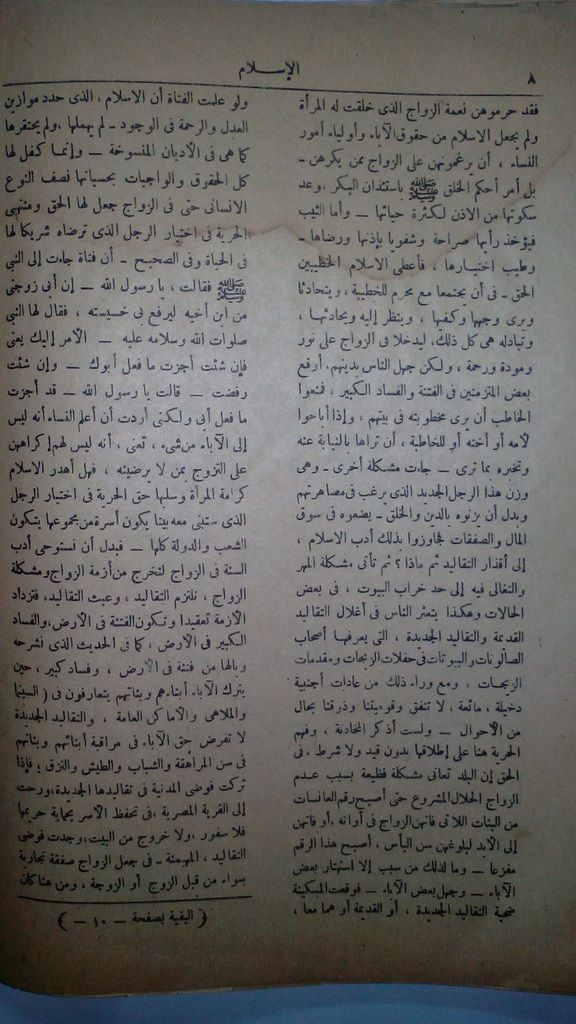 ٨
الإسلام
فقد حرموهن نعمة الزواج الذى خلقت له المرأة
ولم يجعل الاسلام من حقوق الآباء وأولياء أمور
النساء ، أن يرغموهن على الزواج ممن يكرهن ـ
بل أمر أحكم الخلق ﷺ باستئذان البكر ، وعد
سكوتها من الاذن لكثرة حيائها ـ وأما الثيب
فيؤخذ رأيها صراحة وشفويا بإذنها ورضاها ـ
وطيب اختيارها ، فأعطى الاسلام الخطيبين
الحق ـ فى أن يجتمعا مع محرم للخطيبة ، ويتحادثا
ويرى وجهها وكفيها ، وينظر إليه ويحادثها ،
وتبادله هى كل ذلك، ليدخلا فى الزواج على نور
ومودة ورحمة ، ولكن جهل الناس بدينهم. أوقع
بعض المتزمتين فى الفتنة والفساد الكبير ، فمنعوا
الخاطب أن يرى مخطوبته فى بيتهم ، وإذا أباحوا
لأمه أو أخته أو للخاطبة ، أن تراها بالنيابة عنه
وتخبره بما ترى ـ جاءت مشكلة أخرى ـ وهى
وزن هذا الرجل الجديد الذى يرغب فى مصاهرتهم
وبدل أن يزنوه بالدين والخلق ـ يضعوه فى سوق
المال والصفقات فجاوزوا بذلك أدب الاسلام ،
إلى أقذار التقاليد ثم ماذا ؟ ثم تأتى مشكلة المهر
والتغالى فيه إلى حد خراب البيوت ، فى بعض
الحالات وهكذا يتعثر الناس فى أغلال التقاليد
القديمة والتقاليد الجديدة ، التى يعرفها أصحاب
الصالونات والبيوتات فى حفلات الزيجات ومقدمات
الزيجات ، ومع وراء ذلك من عادات أجنبية
دخيلة ، مائعة ، لا تتفق وقوميتنا وذوقنا بحال
من الأحوال ـ ولست أذكر المخادنة ، وفهم
الحرية هنا على إطلاقها بدون قيد ولا شرط ، فى
الحق إن البلد تعانى مشكلة فظيعة بسبب عدم
الزواج الحلال المشروع حتى أصبح رقم العانسات
من البنات اللاتى فاتهن الزواج فى أوانه ، أو فاتهن
إلى الأبد لبلوغهن سن اليأس ، أصبح هذا الرقم
مفزعا ـ وما لذلك من سبب إلا استهتار بعض
الآباء ـ وجهل بعض الآباء ـ فوقعت المسكينة
ضحية التقاليد الجديدة ، أو القديمة أو هما معا ،
ولو علمت الفتاة أن الاسلام ، الذى حدد موازين
العدل والرحمة فى الوجود ـ لم يهملها ، ولم يحتقرها
كما هى فى الأديان المنسوخة ـ وإنما كفل لها
كل الحقوق والواجبات بحسبانها نصف النوع
الانسانى حتى فى الزواج جعل لها الحق ومنتهى
الحرية فى اختيار الرجل الذى ترضاه شريكا لها
فى الحياة وفى الصحيح ـ أن فتاة جاءت إلى النبى
ﷺ فقالت ، يا رسول الله ـ إن أبى زوجنى
من ابن أخيه ليرفع بى خسيسته ، فقال لها النبى
صلوات الله وسلامه عليه ـ الأمر إليك يعنى
فإن شئت أجزت ما فعل أبوك ـ وإن شئت
رفضت ـ قالت يا رسول الله ـ قد أجزت
ما فعل أبى ولكنى أردت أن أعلم النساء أنه ليس
إلى الآباء من شىء ، تعنى ، أنه ليس لهم إكراههن
على التزوج بمن لا يرضينه ، فهل أهدر الاسلام
كرامة المرأة وسلبها حق الحرية فى اختيار الرجل
الذى ستبنى معه بيتا يكون أسرة من مجموعها يتكون
الشعب والدولة كلها ـ فبدل أن نستوحى أدب
السنة فى الزواج لنخرج من أزمة الزواج ومشكلة
الزواج ، نلتزم التقاليد ، وعبث التقاليد، فتزداد
الأزمة تعقيدا وتكون الفتنة فى الأرض، والفساد
الكبير فى الأرض ، كما فى الحديث الذى نشرحه
ويالها من فتنة فى الأرض ، وفساد كبير ، حين
يترك الآباء أبناءهم وبناتهم يتعارفون فى ( السينما
والملاهى والأماكن العامة ، والتقاليد الجديدة
لا تفرض حق الآباء فى مراقبة أبنائهم وبناتهم
فى سن المراهقة والشباب والطيش والنزق ؛ فإذا
تركت فوضى المدنية فى تقاليدها الجديدة، ورحت
إلى القرية المصرية ، فى تحفظ الأسر بحماية حريمها
فلا سفور ، ولا خروج من البيت، وجدت فوضى
التقاليد ، المهيمنة ـ فى جعل الزواج صفقة تجارية
سواء من قبل الزوج أو الزوجة ، ومن هنا كان
( البقية بصفحة ـ ١٠ ـ )